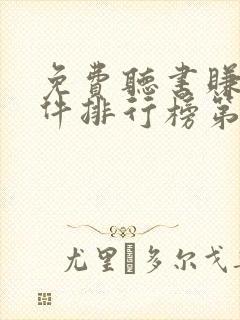 免費聽書賺
件排行榜第
尤里�多尔戈